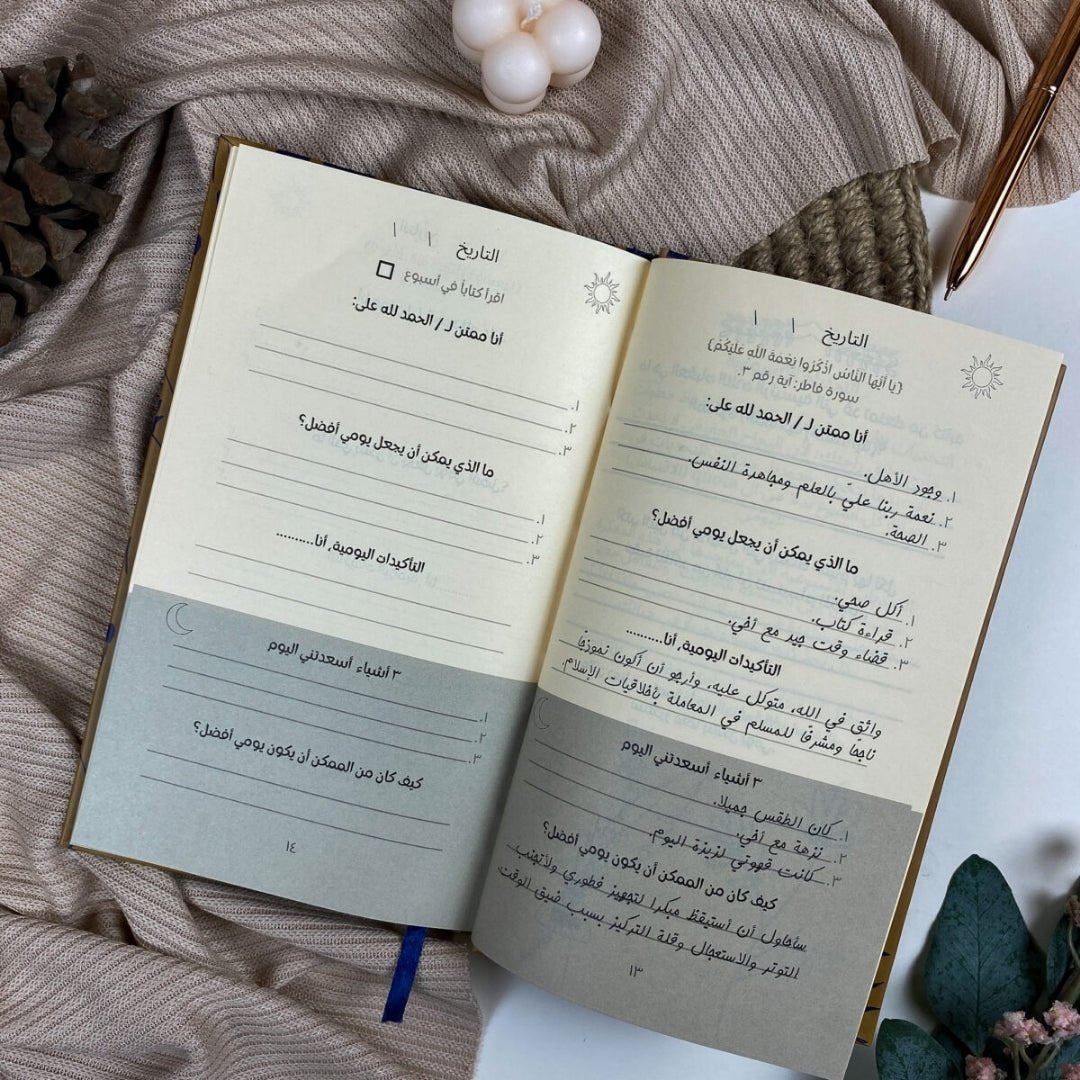 التاريخ \ \
{يَا أَيُّهَا النَّاسُ اذْكُرُوا نِعْمَةَ اللَّهِ عَلَيْكُمْ}
سورة فاطر: آية رقم ٣.
أنا ممتن لـ / الحمد لله على:
١. وجود الأهل.
٢. نعمة ربنا عليّ بالعلم ومجاهدة النفس.
٣. الصحة.
ما الذي يمكن أن يجعل يومي أفضل؟
١. أكل صحي.
٢. قراءة كتاب.
٣. قضاء وقت جيد مع أخي.
التأكيدات اليومية, أنا..........
واثق في الله، متوكل عليه، وأرجو أن أكون نموزجًا
ناجحًا ومشرفًا للمسلم في المعاملة بأخلاقيات الإسلام.
٣ أشياء أسعدتني اليوم
١. كان الطقس جميلا.
٢. نزهة مع أخي.
٣. كانت قهوتي لزيزة اليوم.
كيف كان من الممكن أن يكون يومي أفضل؟
سأحاول أن أستيقظ مبكرا لتجهيز فطوري ولأتجنب
التوتر والاستعجال وقلة التركيز بسبب ضيق الوقت
١٣
التاريخ \ \
اقرأ كتاباً في أسبوع
أنا ممتن لـ / الحمد لله على:
١.
٢.
٣.
ما الذي يمكن أن يجعل يومي أفضل؟
١.
٢.
٣.
التأكيدات اليومية, أنا..........
٣ أشياء أسعدتني اليوم
١.
٢.
٣.
كيف كان من الممكن أن يكون يومي أفضل؟
١٤